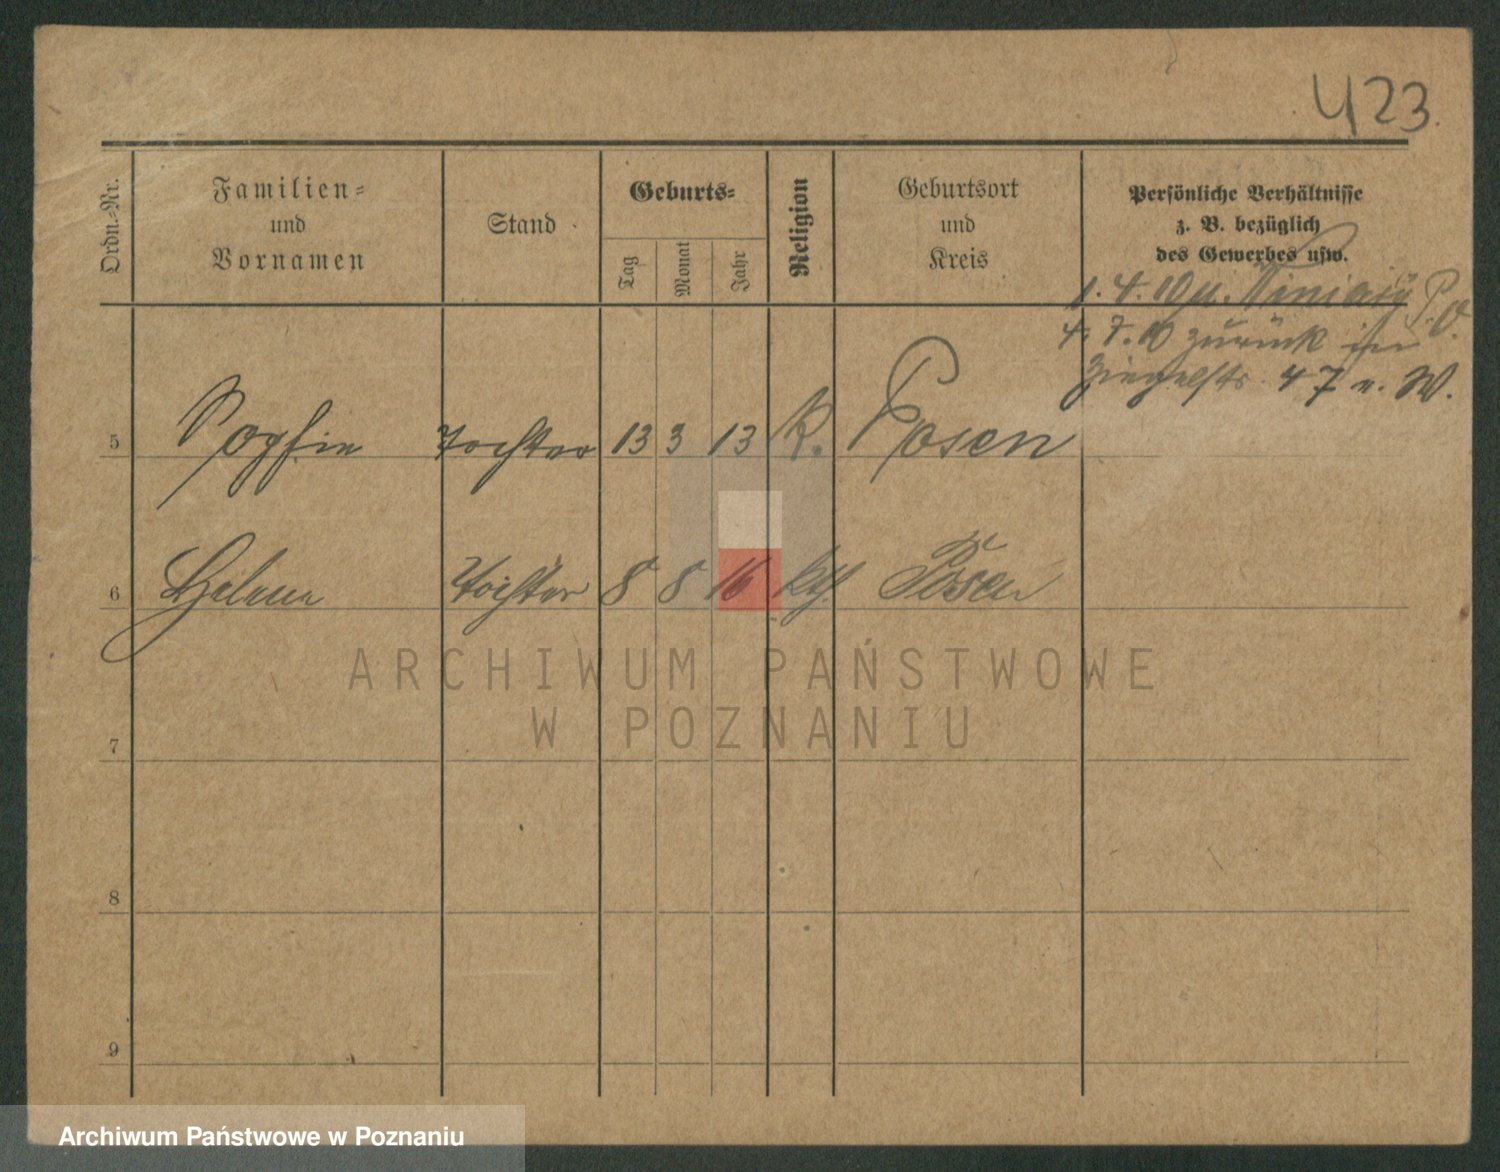 423.
Ordn.-Nr.
Familien-
und
Vornamen
Stand
Geburts-
Tag
Monat
Jahr
Religion
Geburtsort
und
Kreis
Persönliche Verhältnisse
z. B. bezüglich
des Gewerbes usw.
1. 4. 10 n. P. O.
4. 7. 10 zurück in
Ziegelstr. 47 v. W.
5 Sophie Tochter 13 3 13 k. Posen
6 Helene Tochter 8 8 16 kth. Posen
7
8
9
ARCHIWUM PAŃSTWOWE
W POZNANIU
Archiwum Państwowe w Poznaniu